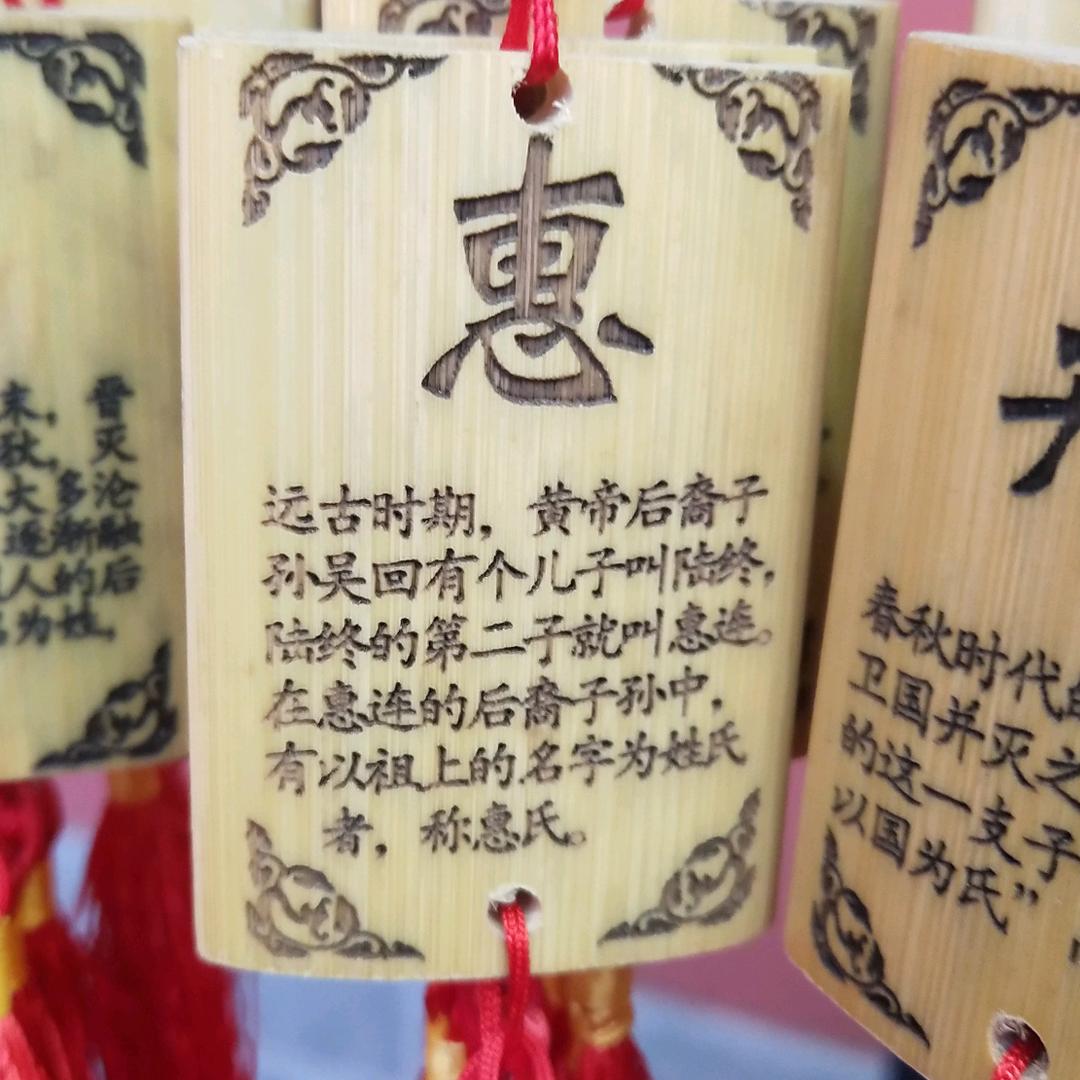 惠
远古时期，黄帝后裔子
孙吴回有个儿子叫陆终，
陆终的第二子就叫惠连。
在惠连的后裔子孙中，
有以祖上的名字为姓氏
者，称惠氏。
末，晋
秋，灭
大多沦
逐渐融
人的后
为姓，
春秋时代
卫国并灭之
的这一支子
以国为氏”